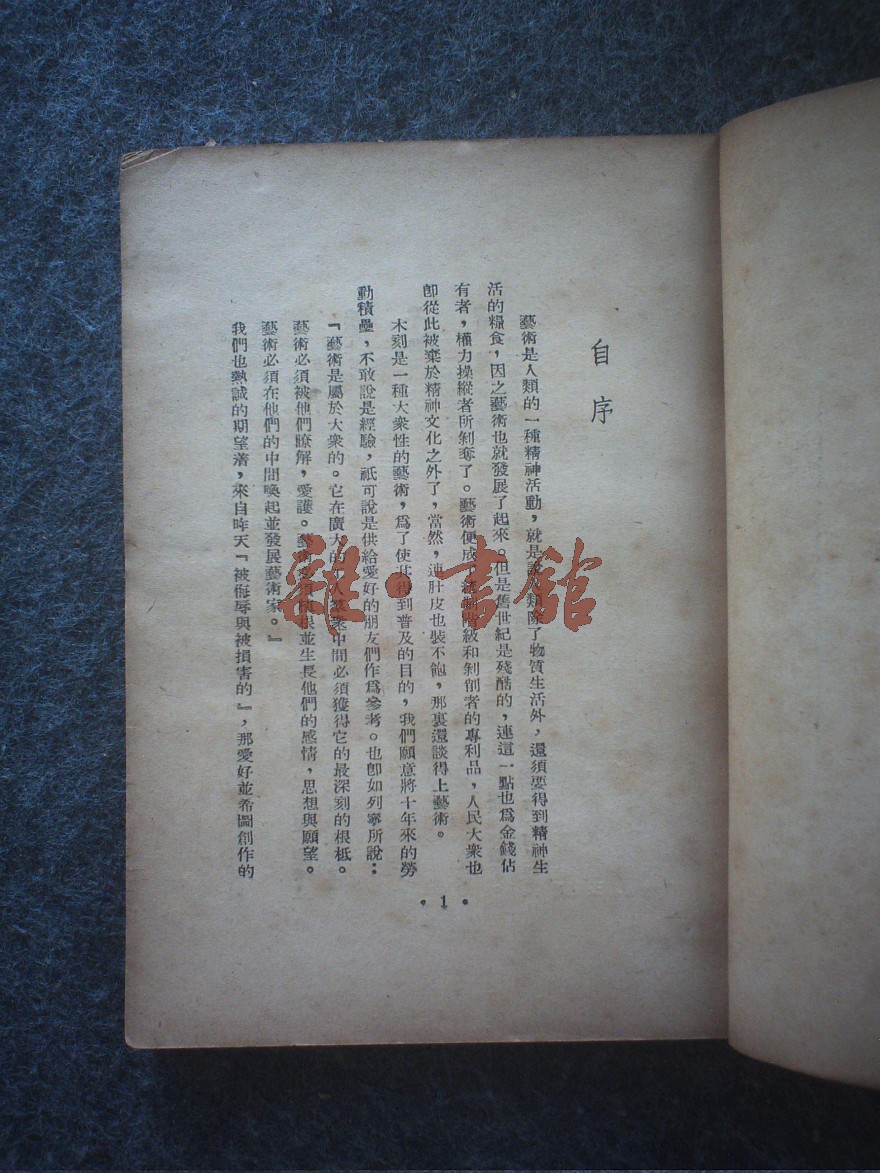 自序
藝術是人類的一種精神活動，就是說人類除了物質生活外，還須要得到精神生
活的糧食，因之藝術也就發展了起來。但是舊世紀是殘酷的，連這一點也爲金錢佔
有者，權力操縱者所剝奪了。藝術便成了統制階級和剝削者的專利品，人民大衆也
卽從此被棄於精神文化之外了，當然，連肚皮也裝不飽，那裏還談得上藝術。
木刻是一種大衆性的藝術，爲了使其得到普及的目的，我們願意將十年來的勞
動積壘，不敢說是經驗，祇可說是供給愛好的朋友們作爲參考。也卽如列寧所說：
『藝術是屬於大衆的。它在廣大的工人羣衆中間必須獲得它的最深刻的根柢。
藝術必須被他們瞭解，愛護。藝術必須植根並生長他們的感情，思想與願望。
藝術必須在他們的中間喚起並發展藝術家。』
我們也熱誠的期望着，來自昨天『被侮辱與被損害的』，那愛好並希圖創作的
·1·
雜·書館